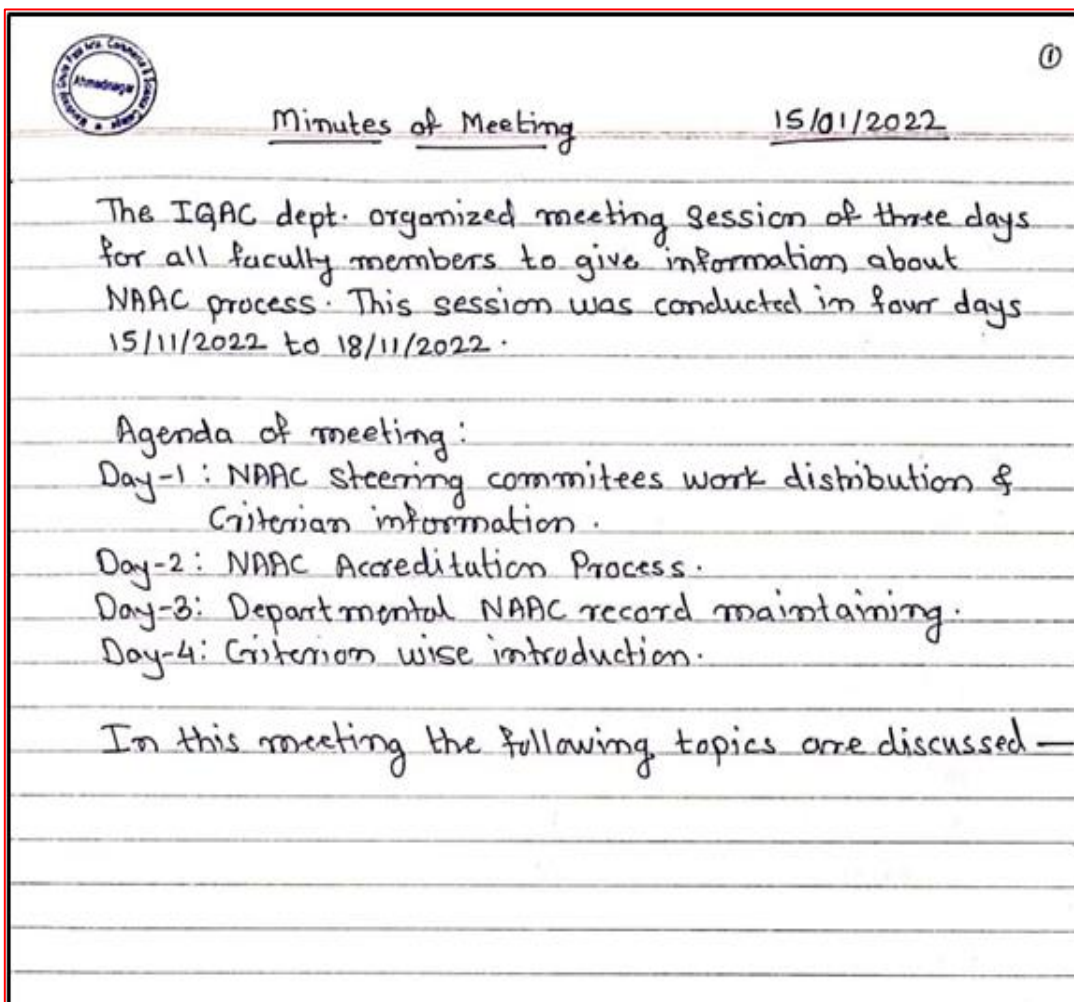 ①
Arts, Commerce & Science College
Ahmednagar
Minutes of Meeting 15/01/2022
The IQAC dept. organized meeting session of three days
for all faculty members to give information about
NAAC process. This session was conducted in four days
15/11/2022 to 18/11/2022.
Agenda of meeting:
Day-1: NAAC steering commitees work distribution &
Criterian information.
Day-2: NAAC Accreditation Process.
Day-3: Departmental NAAC record maintaining.
Day-4: Criterion wise introduction.
In this meeting the following topics are discussed —